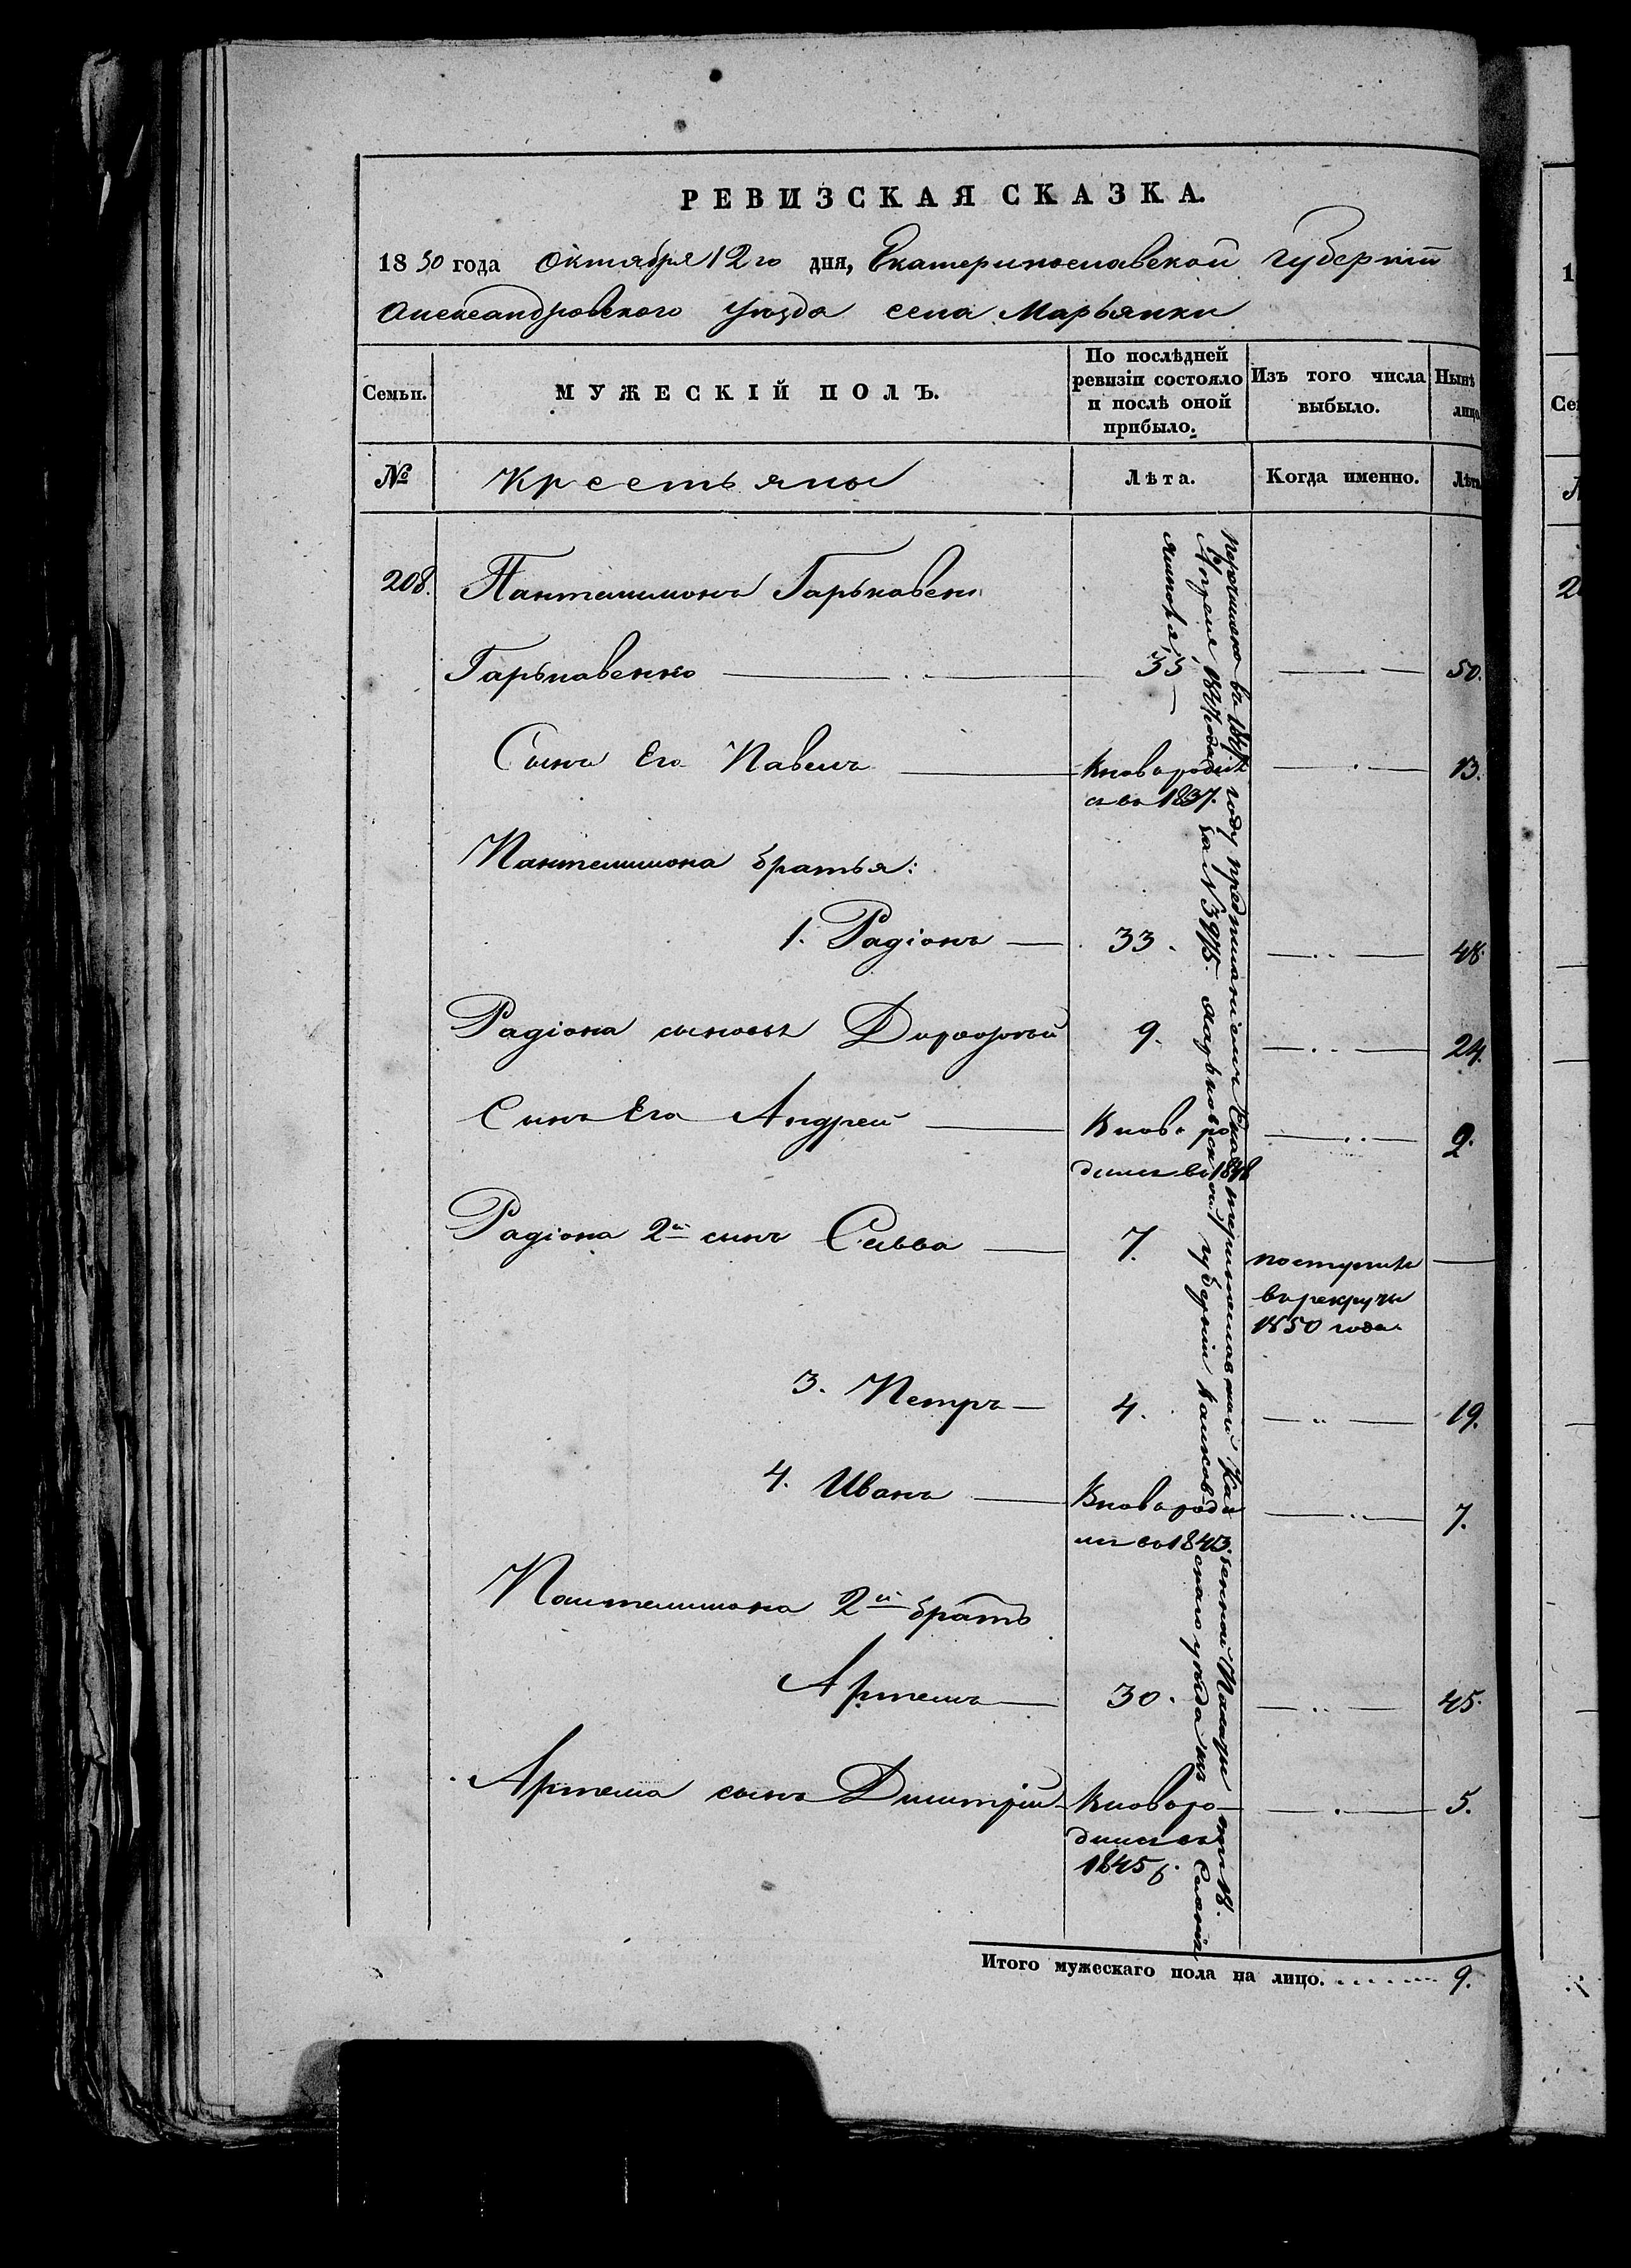 РЕВИЗСКАЯ СКАЗКА.
1850 года Октября 12го дня, Екатеринославской губернiи
Александровского уѣзда села Марьянки
Семьи.
МУЖЕСКІЙ ПОЛЪ.
По послѣдней
ревизіи состояло
и послѣ оной
прибыло.
Изъ того числа
выбыло.
Нынѣ
лицо
№
Крестьяны
Лѣта.
Когда именно.
Лѣта
208. Пантелимонъ
Гарьковенко 35 50.
Сынъ Его Павелъ Вново родил 13.
ся въ 1837.
Пантелимона братья:
1. Радіонъ 33. 48.
Радіона сыновья 9. 24.
Сынъ Его Андрей Вново ро 2.
дился въ 1848
Радіона 2й сынъ Савва 7. поступилъ
въ рекруты
1850 года
3. Петръ 4. 19.
4. Иванъ Вново роди 7.
лся въ 1843.
Пантелимона 2й братъ
Артемъ 30. 45.
Артема сынъ Димитрій Вново ро 5.
дился въ
1845 г.
году предписаніемъ Екатеринославской Казенной Палаты отъ 18.
Апреля 1847 года за №3975. губерніи уѣзда изъ Селенія
Итого мужескаго пола на лицо. 9.